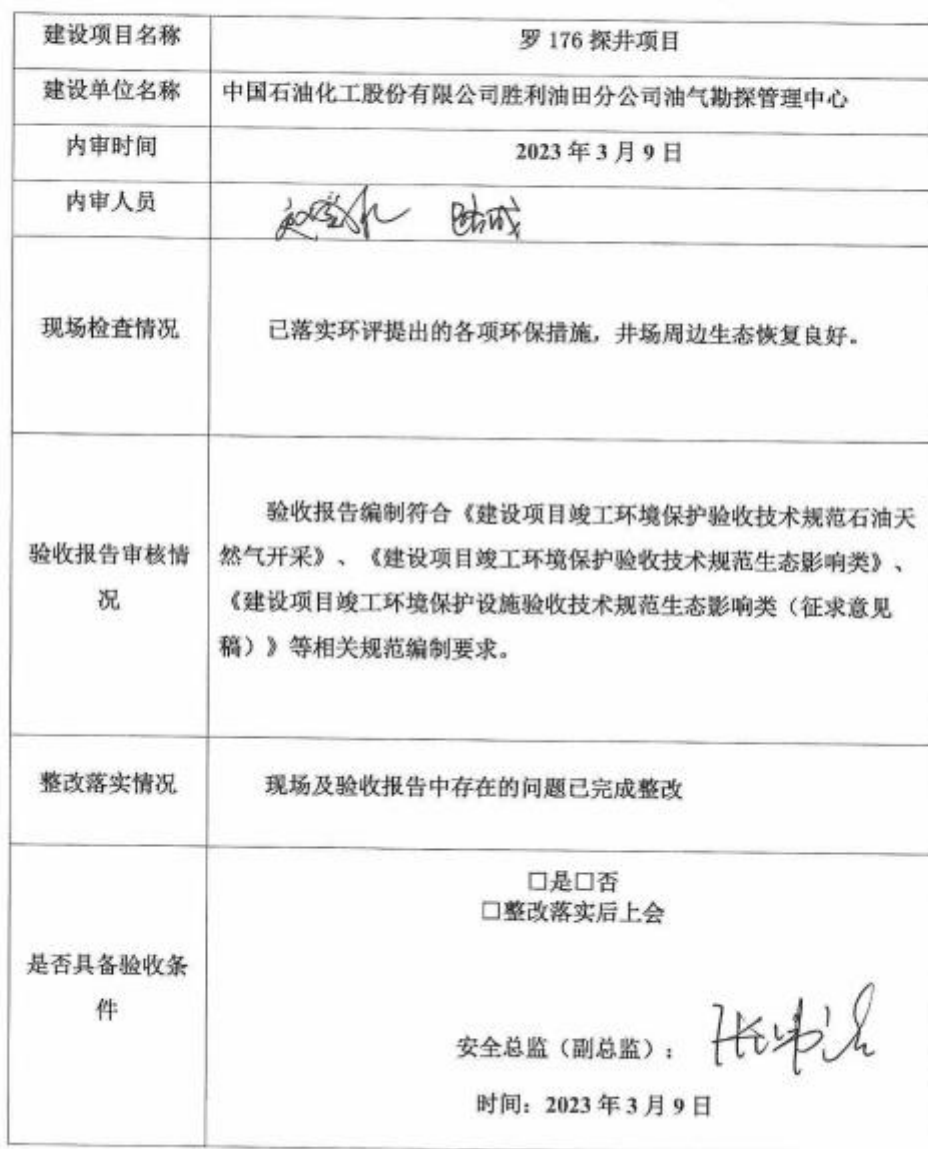 建设项目名称
罗 176 探井项目
建设单位名称
中国石油化工股份有限公司胜利油田分公司油气勘探管理中心
内审时间
2023 年 3 月 9 日
内审人员
现场检查情况
已落实环评提出的各项环保措施，井场周边生态恢复良好。
验收报告审核情
况
验收报告编制符合《建设项目竣工环境保护验收技术规范石油天
然气开采》、《建设项目竣工环境保护验收技术规范生态影响类》、
《建设项目竣工环境保护设施验收技术规范生态影响类（征求意见
稿）》等相关规范编制要求。
整改落实情况
现场及验收报告中存在的问题已完成整改
是否具备验收条
件
□是□否
□整改落实后上会
安全总监（副总监）：
时间：2023 年 3 月 9 日